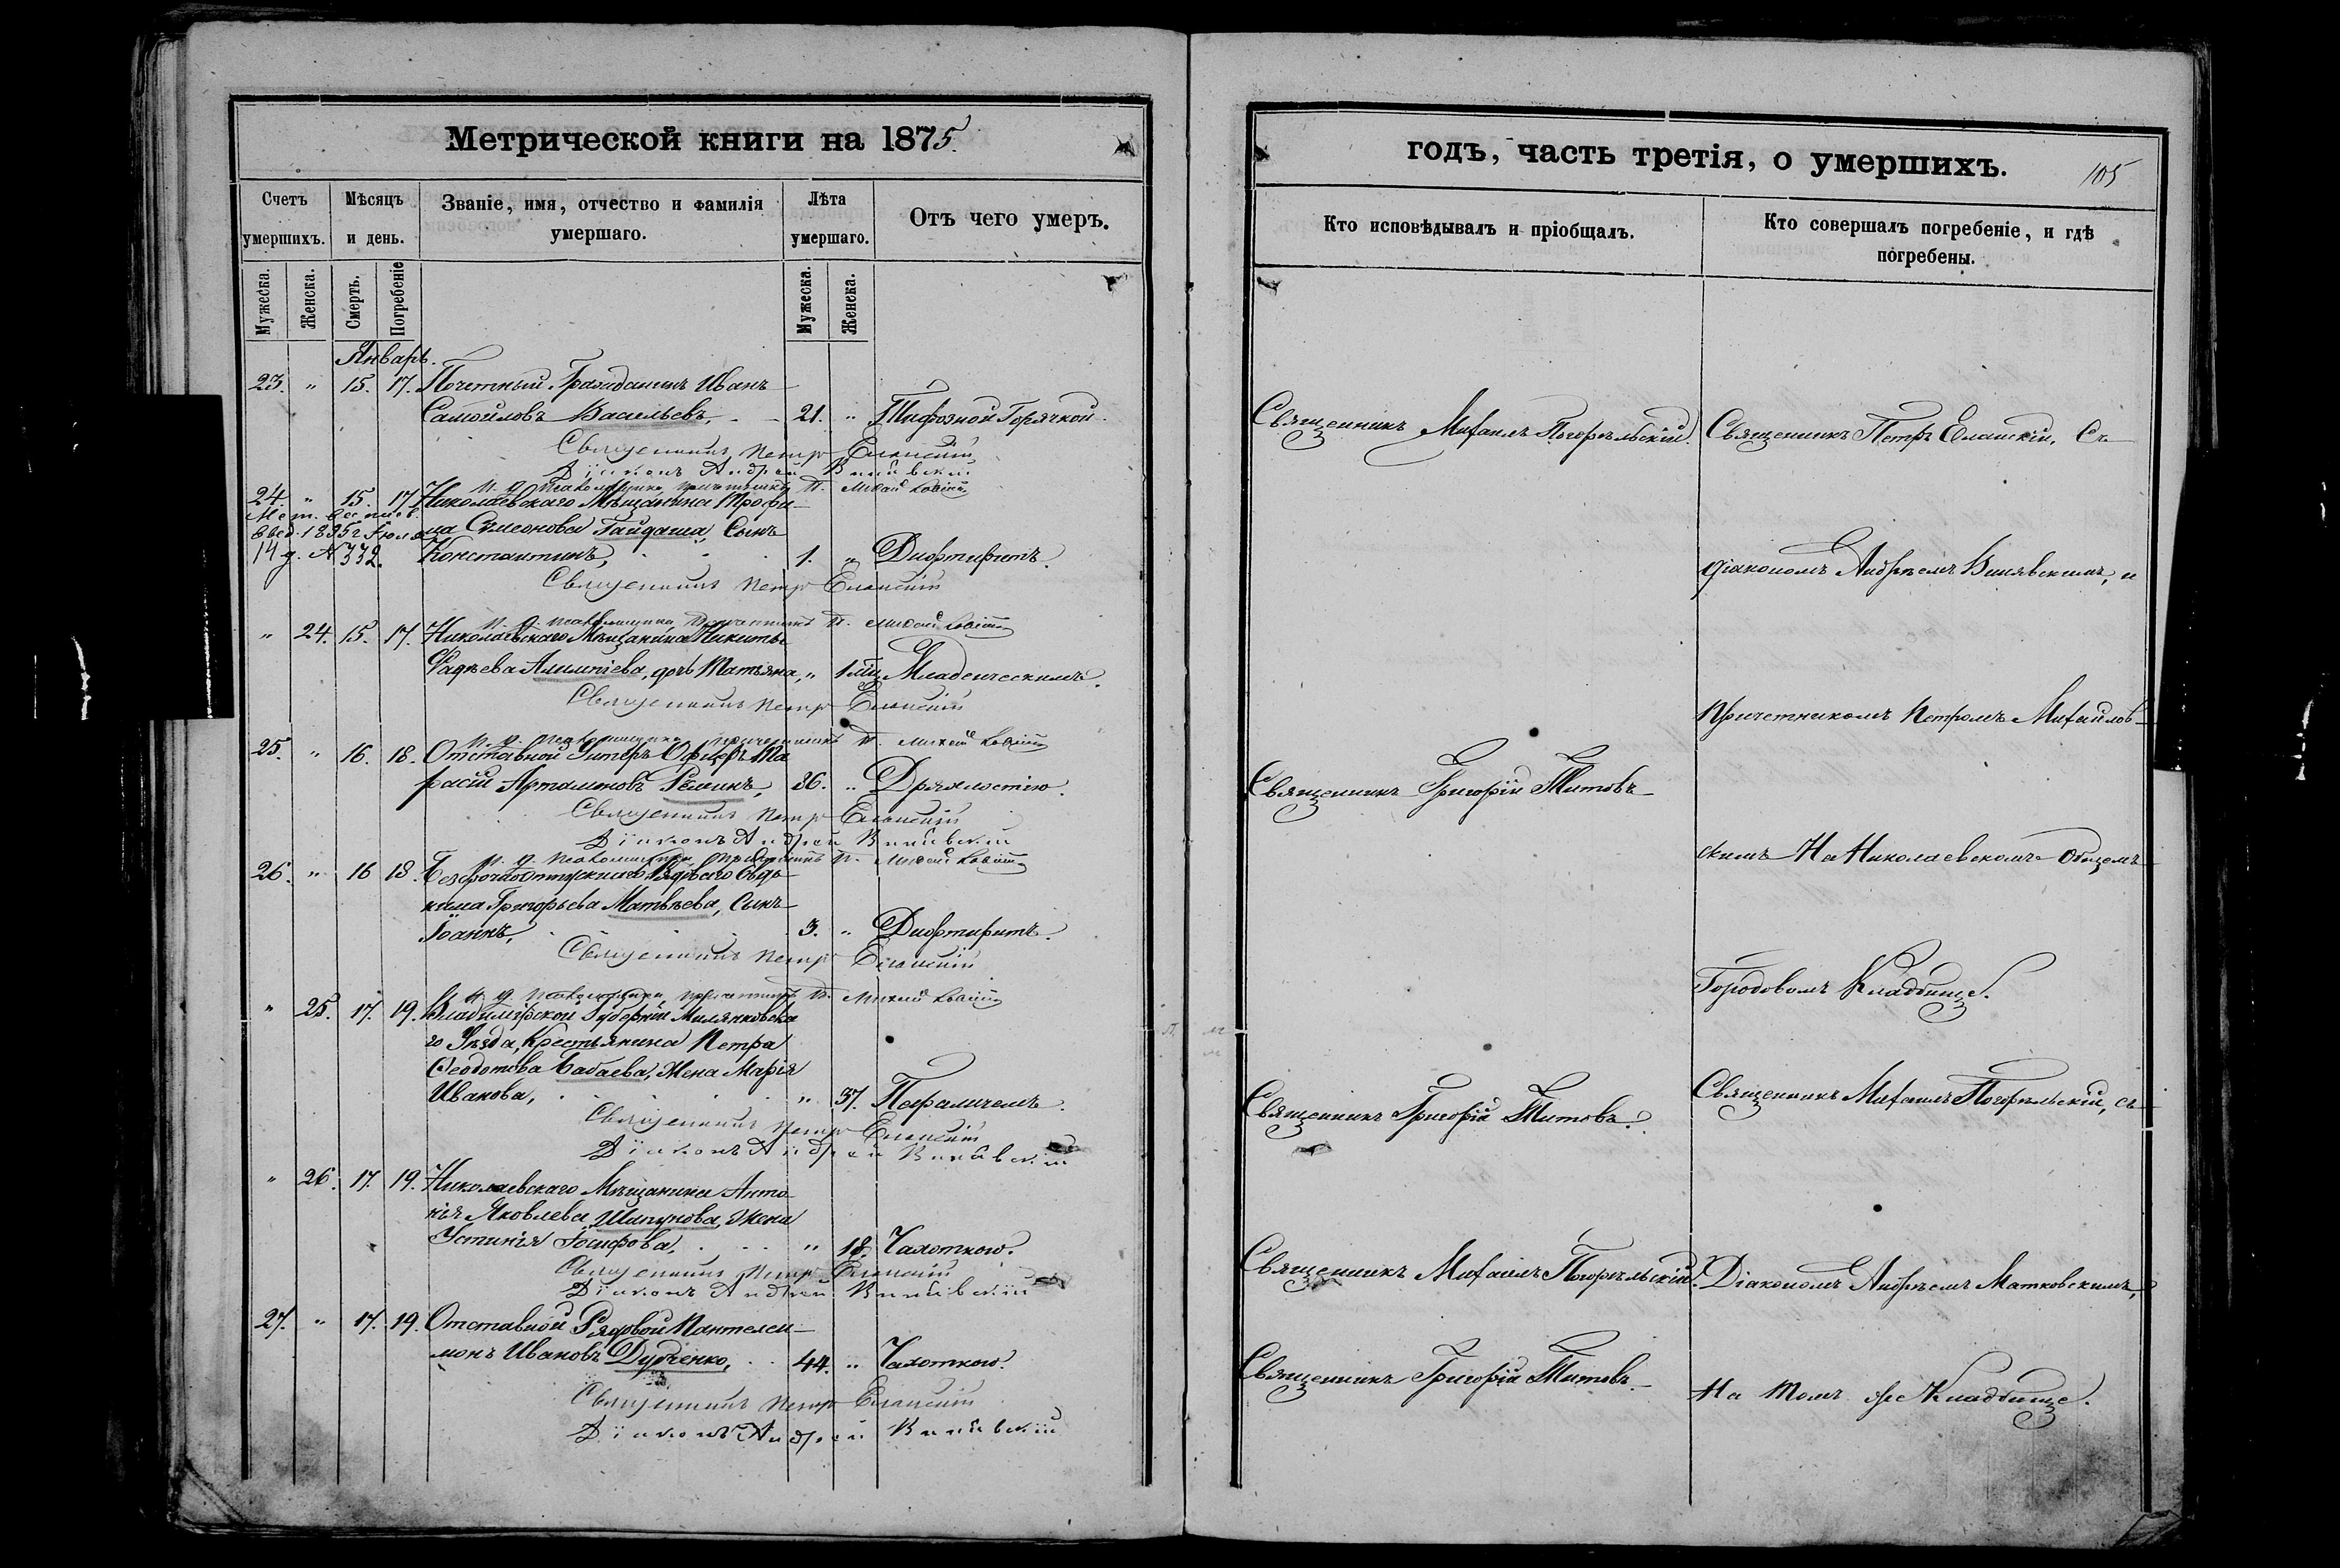 Метрической книги на 1875.
Счетъ умершихъ.
Мѣсяцъ и день.
Званіе, имя, отчество и фамилія умершаго.
Лѣта умершаго.
Отъ чего умеръ.
Мужеска.
Женска.
Смерть.
Погребеніе
Мужеска.
Женска.
Январь.
23. " 15. 17. Почетный Гражданинъ Иванъ
Самойловъ Васильевъ, 21. " Тифозной Горячкой
Священникъ Петръ Еланскій
Діаконъ Андрей Винявскій
24. " 15. 17. Николаевскаго Мѣщанина Трофи-
ма Симеонова Гайдаша, Сынъ
1895 г. Іюля
14 д. № 332.
Константинъ, 1. " Дифтеритъ.
Священникъ Петръ Еланскій
И. д. псаломщика причетникъ П. Михайловскій
" 24. 15. 17. Николаевскаго Мѣщанина Никиты
Фадѣева Алимпіева, дочь Татьяна, " 1 Младенческимъ.
Священникъ Петръ Еланскій
И. д. псаломщика причетникъ П. Михайловскій
25. " 16. 18. Отставной Унтеръ Офицеръ Та-
расій Артамоновъ 86. " Дряхлостію.
Священникъ Петръ Еланскій
Діаконъ Андрей Винявскій
И. д. псаломщика причетникъ П. Михайловскій
26. " 16 18. Безсрочноотпускнаго Рядоваго
Григорьева Матвѣева, Сынъ
Іоаннъ, 3. " Дифтеритъ.
Священникъ Петръ Еланскій
И. д. псаломщика причетникъ П. Михайловскій
" 25. 17. 19. Владимірской Губерніи
го Уѣзда, Крестьянина Петра
Ѳеодотова Бабаева, Жена Марія
Иванова, " 57. Параличемъ.
Священникъ Петръ Еланскій
Діаконъ Андрей Винявскій
" 26. 17. 19. Николаевскаго Мѣщанина Анто-
нія Яковлева Шапунова, Жена
Устинія Іосифова, " 18. Чахоткою.
Священникъ Петръ Еланскій
Діаконъ Андрей Винявскій
27. " 17. 19. Отставной Рядовой Пантелей-
монъ Ивановъ Дудченко, 44. " Чахоткою.
Священникъ Петръ Еланскій
Діаконъ Андрей Винявскій
годъ, часть третія, о умершихъ.
105
Кто исповѣдывалъ и пріобщалъ.
Кто совершалъ погребеніе, и гдѣ погребены.
Священникъ Михаилъ Погорѣльскій.
Священникъ Григорій Титовъ
Священникъ Григорій Титовъ.
Священникъ Михаилъ Погорѣльскій.
Священникъ Григорій Титовъ.
Священникъ Петръ Еланскій, Съ
діакономъ Андреемъ Винявскимъ, и
Причетникомъ Петромъ Михайлов-
скимъ На Николаевскомъ Общемъ
Городовомъ Кладбищѣ.
Священникъ Михаилъ Погорѣльскій, съ
Діакономъ Андреемъ Матковскимъ,
На томъ же Кладбище.